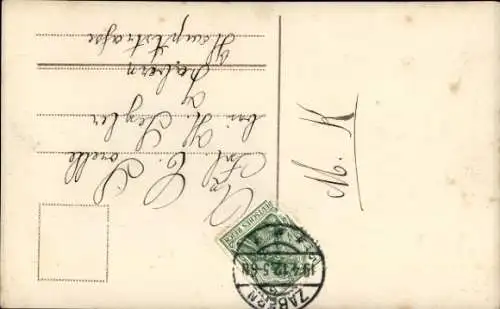 An
Frl. C. Sorelle
bei H. Seyler
Zabern
Hauptstrasse
M. K
DEUTSCHES REICH
ZABERN
19.4.12.5-6N